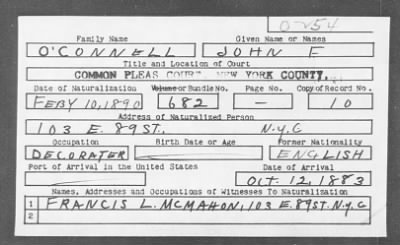 O-254
Family Name Given Name or Names
O'CONNELL JOHN F
Title and Location of Court
COMMON PLEAS COURT, NEW YORK COUNTY.
Date of Naturalization Volume or Bundle No. Page No. Copy of Record No.
FEBY 10, 1890 682 — 10
Address of Naturalized Person
103 E. 89 ST. N.Y.C
Occupation Birth Date or Age Former Nationality
DECORATER ENGLISH
Port of Arrival in the United States Date of Arrival
OCT. 12, 1883
Names, Addresses and Occupations of Witnesses To Naturalization
1 FRANCIS L. MCMAHON, 103 E. 89 ST. N.Y.C
2